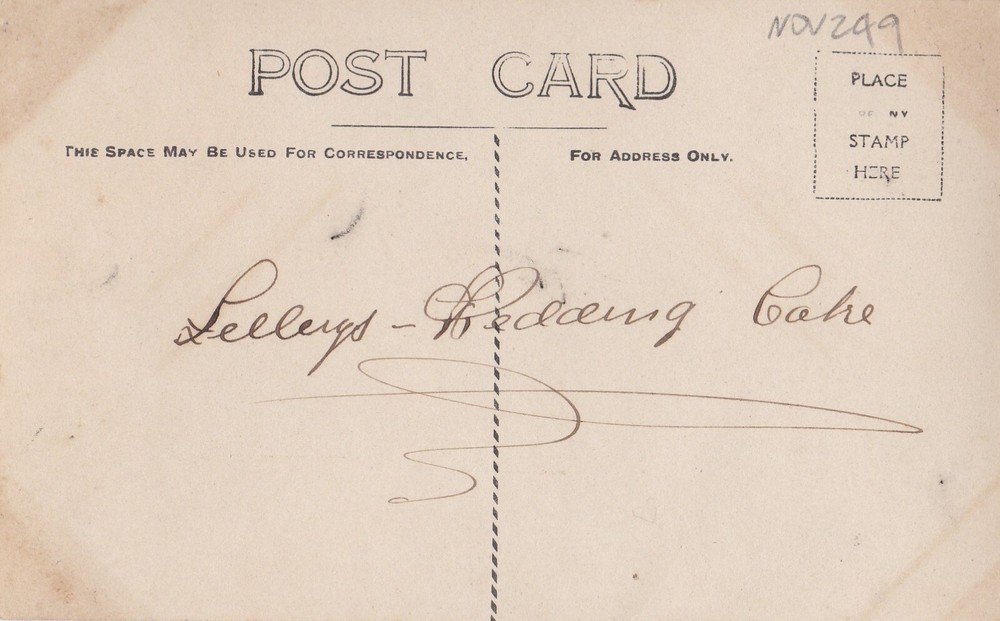 NOV249
POST CARD
THIS SPACE MAY BE USED FOR CORRESPONDENCE,
FOR ADDRESS ONLY.
PLACE
NY
STAMP
HERE
Wedding Cake